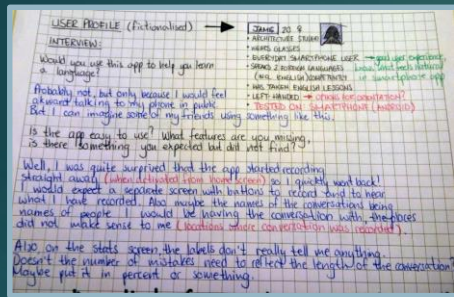 USER PROFILE (fictionalised)
JAMIE 20.8
• ARCHITECTURE STUDENT
• WEARS GLASSES
• EVERYDAY SMARTPHONE USER → good user experience,
• SPEAKS 2 FOREIGN LANGUAGES
(INCL. ENGLISH) COMPETENTLY
in smartphone app
• HAS TAKEN ENGLISH LESSONS
• LEFT-HANDED → OPTIONS FOR ORIENTATION?
• TESTED ON SMARTPHONE (ANDROID)
INTERVIEW:
Would you use this app to help you learn
a language?
Probably not, but only because I would feel
akward talking to my phone in public.
But I can imagine some of my friends using something like this.
Is the app easy to use? What features are you missing,
is there something you expected but did not find?
Well, I was quite surprised that the app started recording
straight away (when activated from home screen) so I quickly went back!
I would expect a separate screen with buttons to record and to hear
what I have recorded. Also maybe the names of the conversations being
names of people I would be having the conversation with, the places
did not make sense to me (locations where conversation was recorded).
Also, on the stats screen, the labels don't really tell me anything.
Doesn't the number of mistakes need to reflect the length of the conversation?
Maybe put it in percent or something.